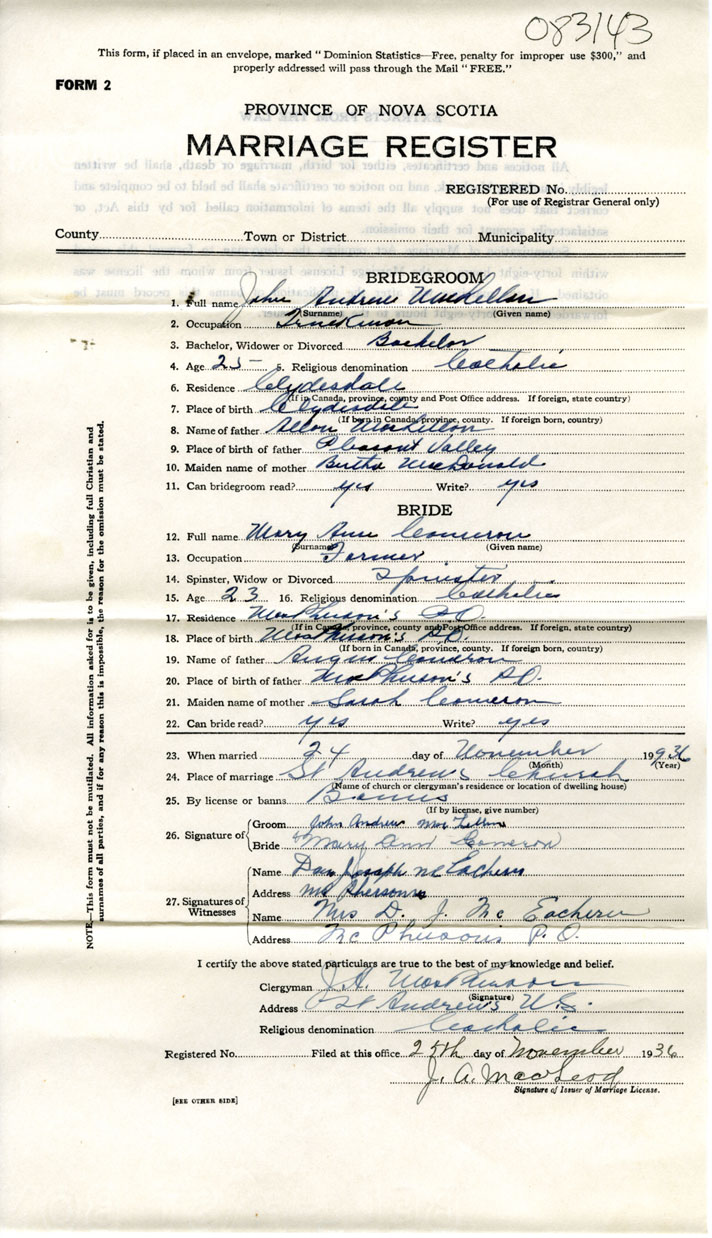 083143
This form, if placed in an envelope, marked "Dominion Statistics—Free, penalty for improper use $300," and
properly addressed will pass through the Mail "FREE."
FORM 2
PROVINCE OF NOVA SCOTIA
MARRIAGE REGISTER
REGISTERED No.
(For use of Registrar General only)
County Town or District Municipality
BRIDEGROOM
1. Full name John Andrew MacLellan
(Surname) (Given name)
2. Occupation Truckman
3. Bachelor, Widower or Divorced Bachelor
4. Age 25 5. Religious denomination Catholic
6. Residence Clydesdale
(If in Canada, province, county and Post Office address. If foreign, state country)
7. Place of birth Clydesdale
(If born in Canada, province, county. If foreign born, country)
8. Name of father Allan MacLellan
9. Place of birth of father Pleasant Valley
10. Maiden name of mother Bertha MacDonald
11. Can bridegroom read? yes Write? yes
BRIDE
12. Full name Mary Ann Cameron
(Surname) (Given name)
13. Occupation Farmer
14. Spinster, Widow or Divorced Spinster
15. Age 23 16. Religious denomination Catholic
17. Residence MacPherson's P.O.
(If in Canada, province, county and Post Office address. If foreign, state country)
18. Place of birth MacPherson's P.O.
(If born in Canada, province, county. If foreign born, country)
19. Name of father Angus Cameron
20. Place of birth of father MacPherson's P.O.
21. Maiden name of mother Sarah Cameron
22. Can bride read? yes Write? yes
23. When married 24 day of November 1936
(Month) (Year)
24. Place of marriage St Andrew's Church
(Name of church or clergyman's residence or location of dwelling house)
25. By license or banns Banns
(If by license, give number)
26. Signature of Groom John Andrew MacLellan
Bride Mary Ann Cameron
27. Signatures of Witnesses
Name Dan Joseph McEachern
Address McPhersons
Name Mrs D. J. McEachern
Address McPherson's P.O.
I certify the above stated particulars are true to the best of my knowledge and belief.
Clergyman J.H. MacPherson
(Signature)
Address St Andrew's
Religious denomination Catholic
Registered No. Filed at this office 25th day of November 1936
J. A. MacLeod
Signature of Issuer of Marriage License.
[SEE OTHER SIDE]
NOTE.—This form must not be mutilated. All information asked for is to be given, including full Christian and
surnames of all parties, and if for any reason this is impossible, the reason for the omission must be stated.